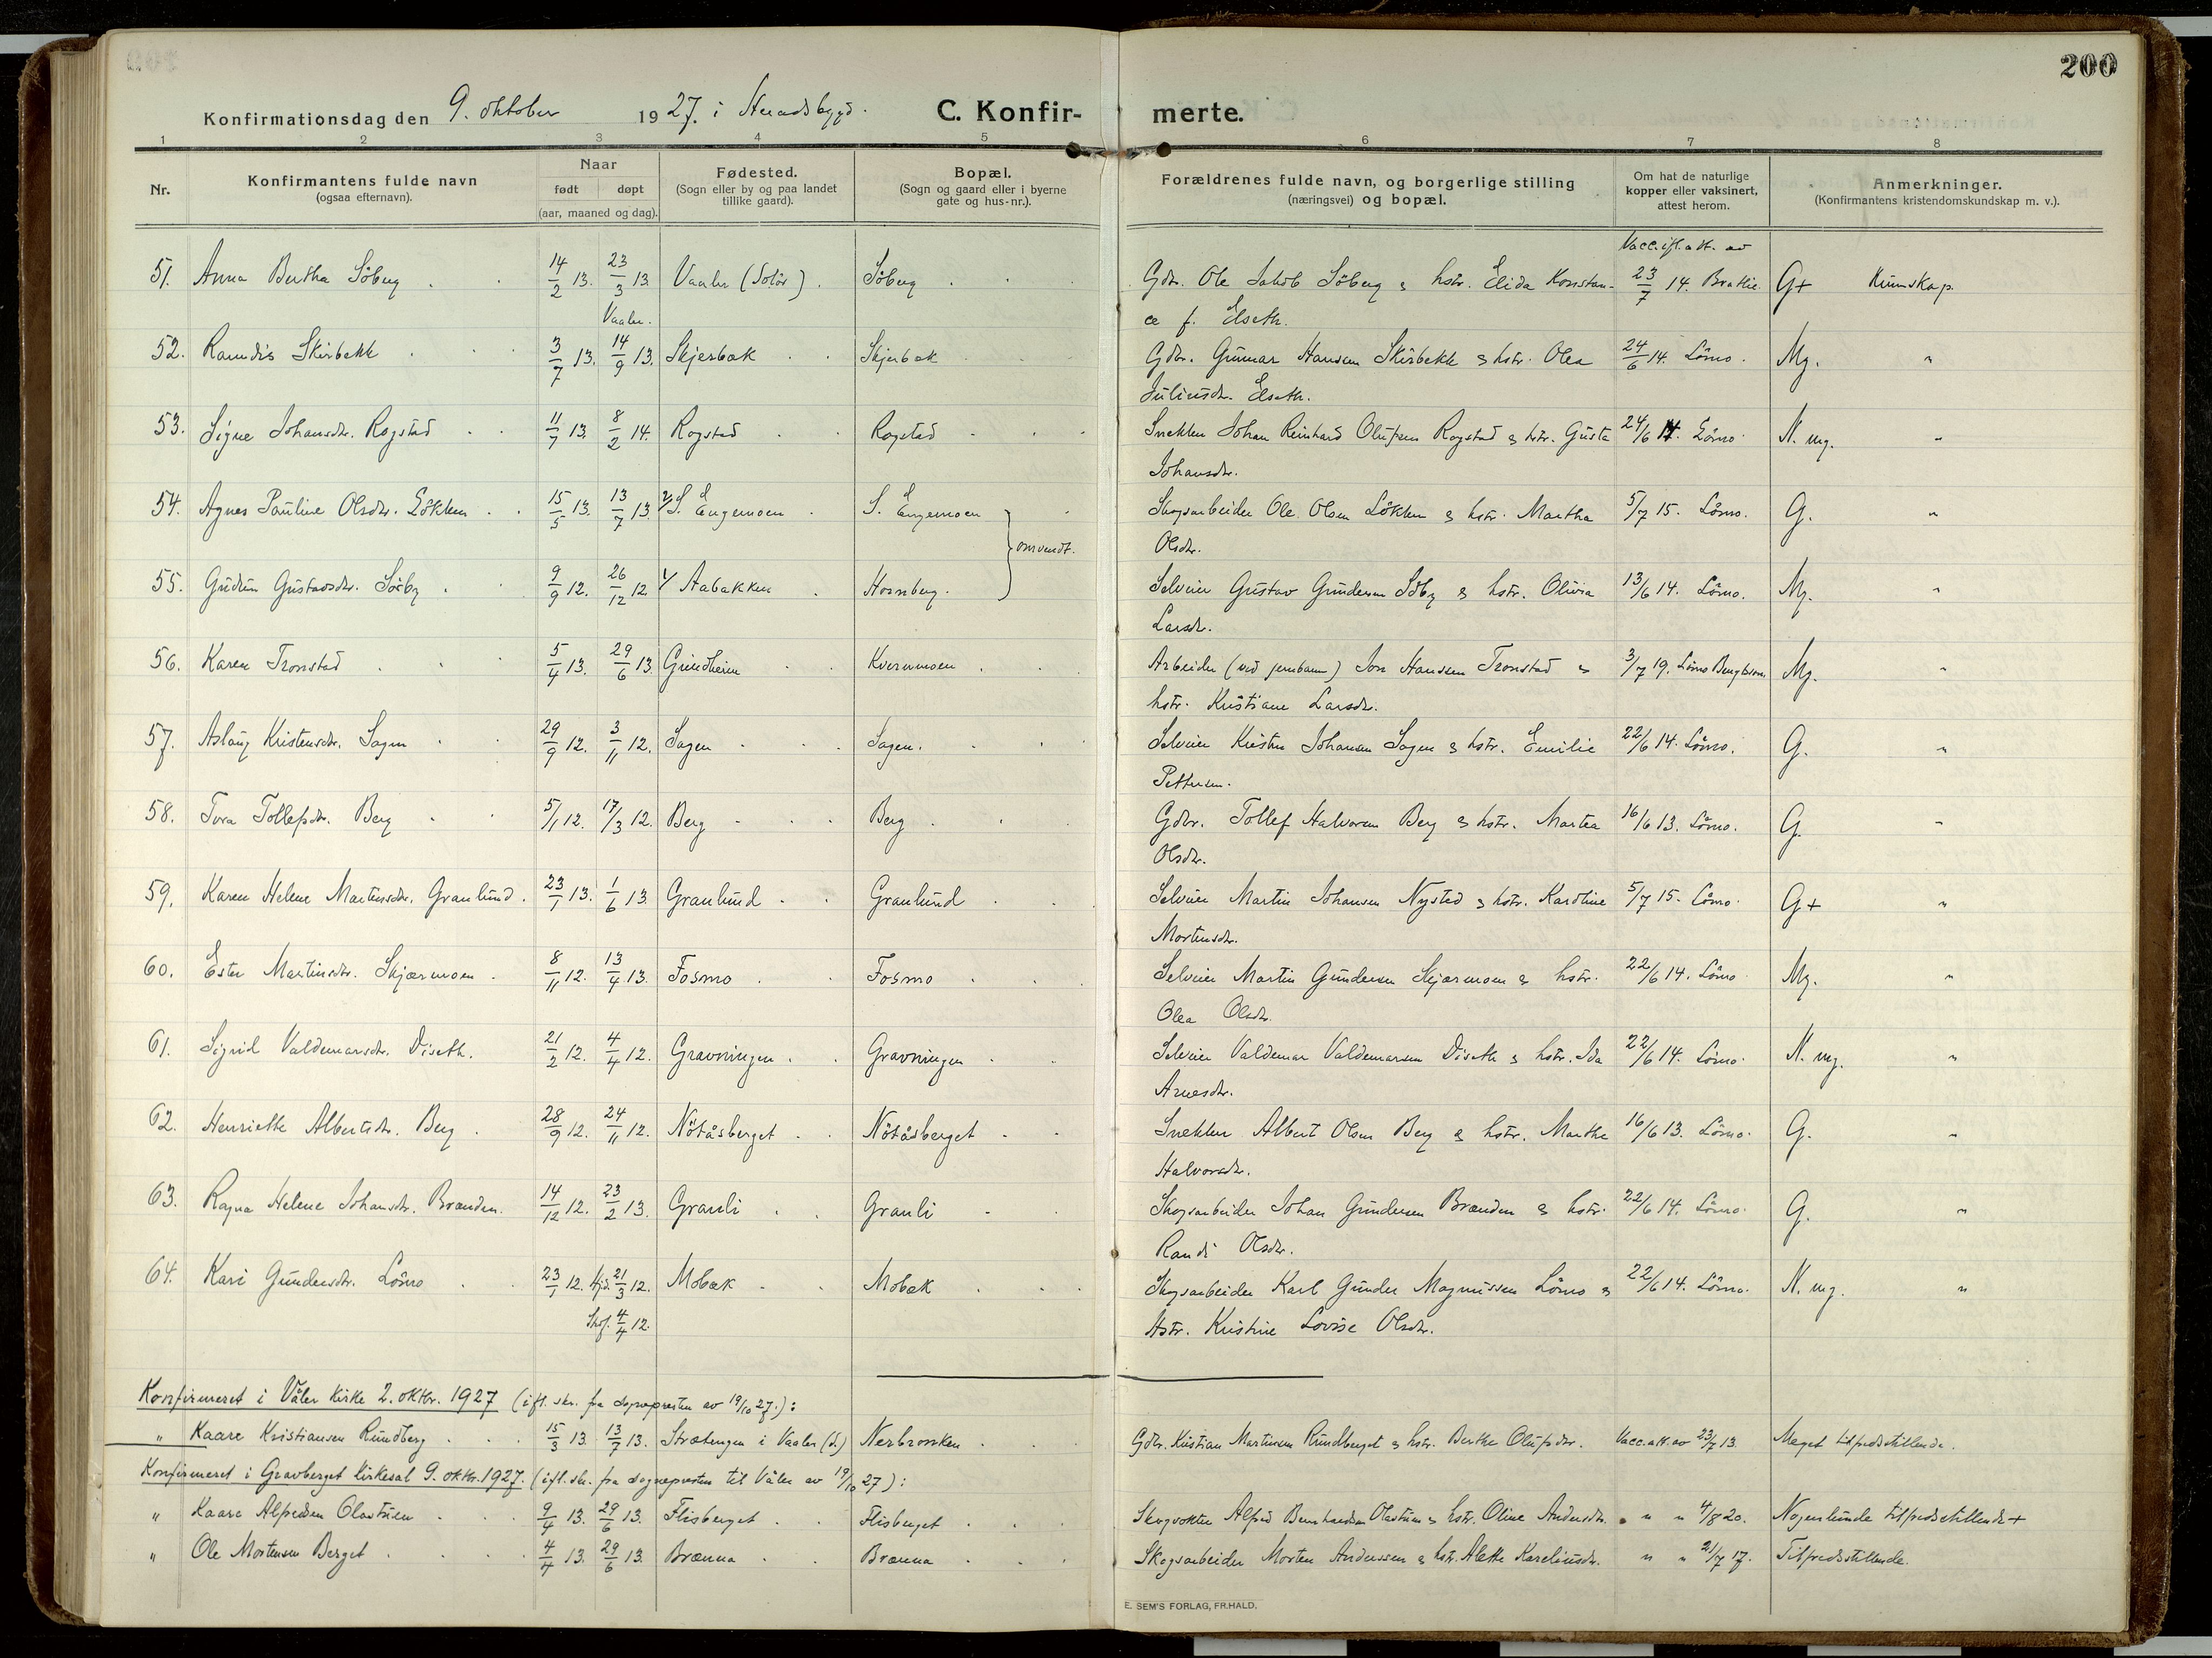 200
Konfirmationsdag den 9. oktober 1927. i Heradsbygd. C. Konfirmerte.
1 2 3 4 5 6 7 8
Nr. Konfirmantens fulde navn (ogsaa efternavn). Naar født døpt (aar, maaned og dag). Fødested. (Sogn eller by og paa landet tillike gaard). Bopæl. (Sogn og gaard eller i byerne gate og hus-nr.). Forældrenes fulde navn, og borgerlige stilling (næringsvei) og bopæl. Om hat de naturlige kopper eller vaksinert, attest herom. Anmerkninger. (Konfirmantens kristendomskundskap m. v.).
Vacc. ifl. att. av
51. Anna Bertha Söberg 14/2 13. 23/3 13. Vaaler (Solör). Söberg Gdbr. Ole Jakob Söberg & hstr. Elida Konstan- 23/7 14. Brathe. G+ Kunnskap.
Vaaler. ce f. Elseth.
52. Ramdis Skirbekk 3/7 13. 14/9 13. Skjerbæk Skjerbæk Gdbr. Gunnar Hansen Skirbekk & hstr. Olea 24/6 14. Lömo. Mg. "
Juliusdr. Elseth.
53. Signe Johansdr. Rogstad 11/7 13. 8/2 14. Rogstad Rogstad Snekker Johan Reinhard Olufsen Rogstad & hstr. Gusta 24/6 14. Lömo. N. mg. "
Johansdr.
54. Agnes Pauline Olsdr. Lökken 15/5 13. 13/7 13. S. Engemoen S. Engemoen Skogsarbeider Ole Olsen Lökken & hstr. Martha 5/7 15. Lömo. G. "
omvendt. Olsdr.
55. Gudrun Gustavsdr. Sörby 9/9 12. 26/12 12. Aabakken Hornberg. Selveier Gustav Gundersen Söby & hstr. Olivia 13/6 14. Lömo. Mg. "
Larsdr.
56. Karen Tronstad 5/4 13. 29/6 13. Grindheim Kvernmoen Arbeider (ved jernbanen) Jon Hansen Tronstad & 3/7 19. Lömo Mg. "
hstr. Kristiane Larsdr.
57. Aslaug Kristensdr. Sagen 29/9 12. 3/11 12. Sagen Sagen. Selveier Kristen Johansen Sagen & hstr. Emilie 22/6 14. Lömo. G. "
Pettersen.
58. Tora Tollefsdr. Berg 5/1 12. 17/3 12. Berg Berg Gdbr. Tollef Halvorsen Berg & hstr. Martea 16/6 13. Lömo. G. "
Olsdr.
59. Karen Helene Martinsdr. Granlund. 23/1 13. 1/6 13. Granlund Granlund Selveier Martin Johansen Nysted & hstr. Karoline 5/7 15. Lömo. G+ "
Mortensdr.
60. Ester Martinsdr. Skjærmoen 8/11 12. 13/4 13. Fosmo Fosmo Selveier Martin Gundersen Skjærmoen & hstr. 22/6 14. Lömo Mg. "
Olea Olsdr.
61. Sigrid Valdemarsdr. Diseth. 21/2 12. 4/4 12. Gravningen Gravningen Selveier Valdemar Valdemarsen Diseth & hstr. Ida 22/6 14. Lömo. N. mg. "
Arnesdr.
62. Henriette Albertsdr. Berg 28/9 12. 24/11 12. Nötåsberget Nötåsberget Snekker Albert Olsen Berg & hstr. Marthe 16/6 13. Lömo. G. "
Halvorsdr.
63. Ragna Helene Johansdr. Brænden. 14/12 12. 23/2 13. Granli Granli Skogsarbeider Johan Gundersen Brænden & hstr. 22/6 14. Lömo. G. "
Randi Olsdr.
64. Kari Gundersdr. Lömo 23/1 12. hjd. 21/3 12. Mobæk Mobæk Skogsarbeider Karl Gunder Magnussen Lömo & 22/6 14. Lömo. N. mg. "
4/4 12. hstr. Kristine Lovise Olsdr.
Konfirmeret i Våler kirke 2. oktbr. 1927 (ifl. skr. fra sognepresten av 19/10 27.):
" Kaare Kristiansen Rundberg 15/3 13. 13/7 13. Stræbengen i Vaaler (S.) Nerbronken Gdbr. Kristian Martinsen Rundberget & hstr. Berthe Olufsdr. Vacc. att. av 23/7 13. Meget tilfredsstillende.
Konfirmeret i Gravberget kirkesal 9. oktbr. 1927. (ifl. skr. fra sognepresten til Våler av 19/10 27):
" Kaare Alfredsen Olastuen 9/4 13. 29/6 13. Flisberget Flisberget Skogvokter Alfred Bernhardsen Olastuen & hstr. Oline Andersdr. " " 4/8 20. Nogenlunde tilfredsstillende +
" Ole Mortensen Berget 4/4 13. 29/6 13. Brænna Brænna Skogsarbeider Morten Anderssen & hstr. Alette Kareliusdr. " " 21/7 17. Tilfredsstillende.
E. SEM'S FORLAG, FR.HALD.